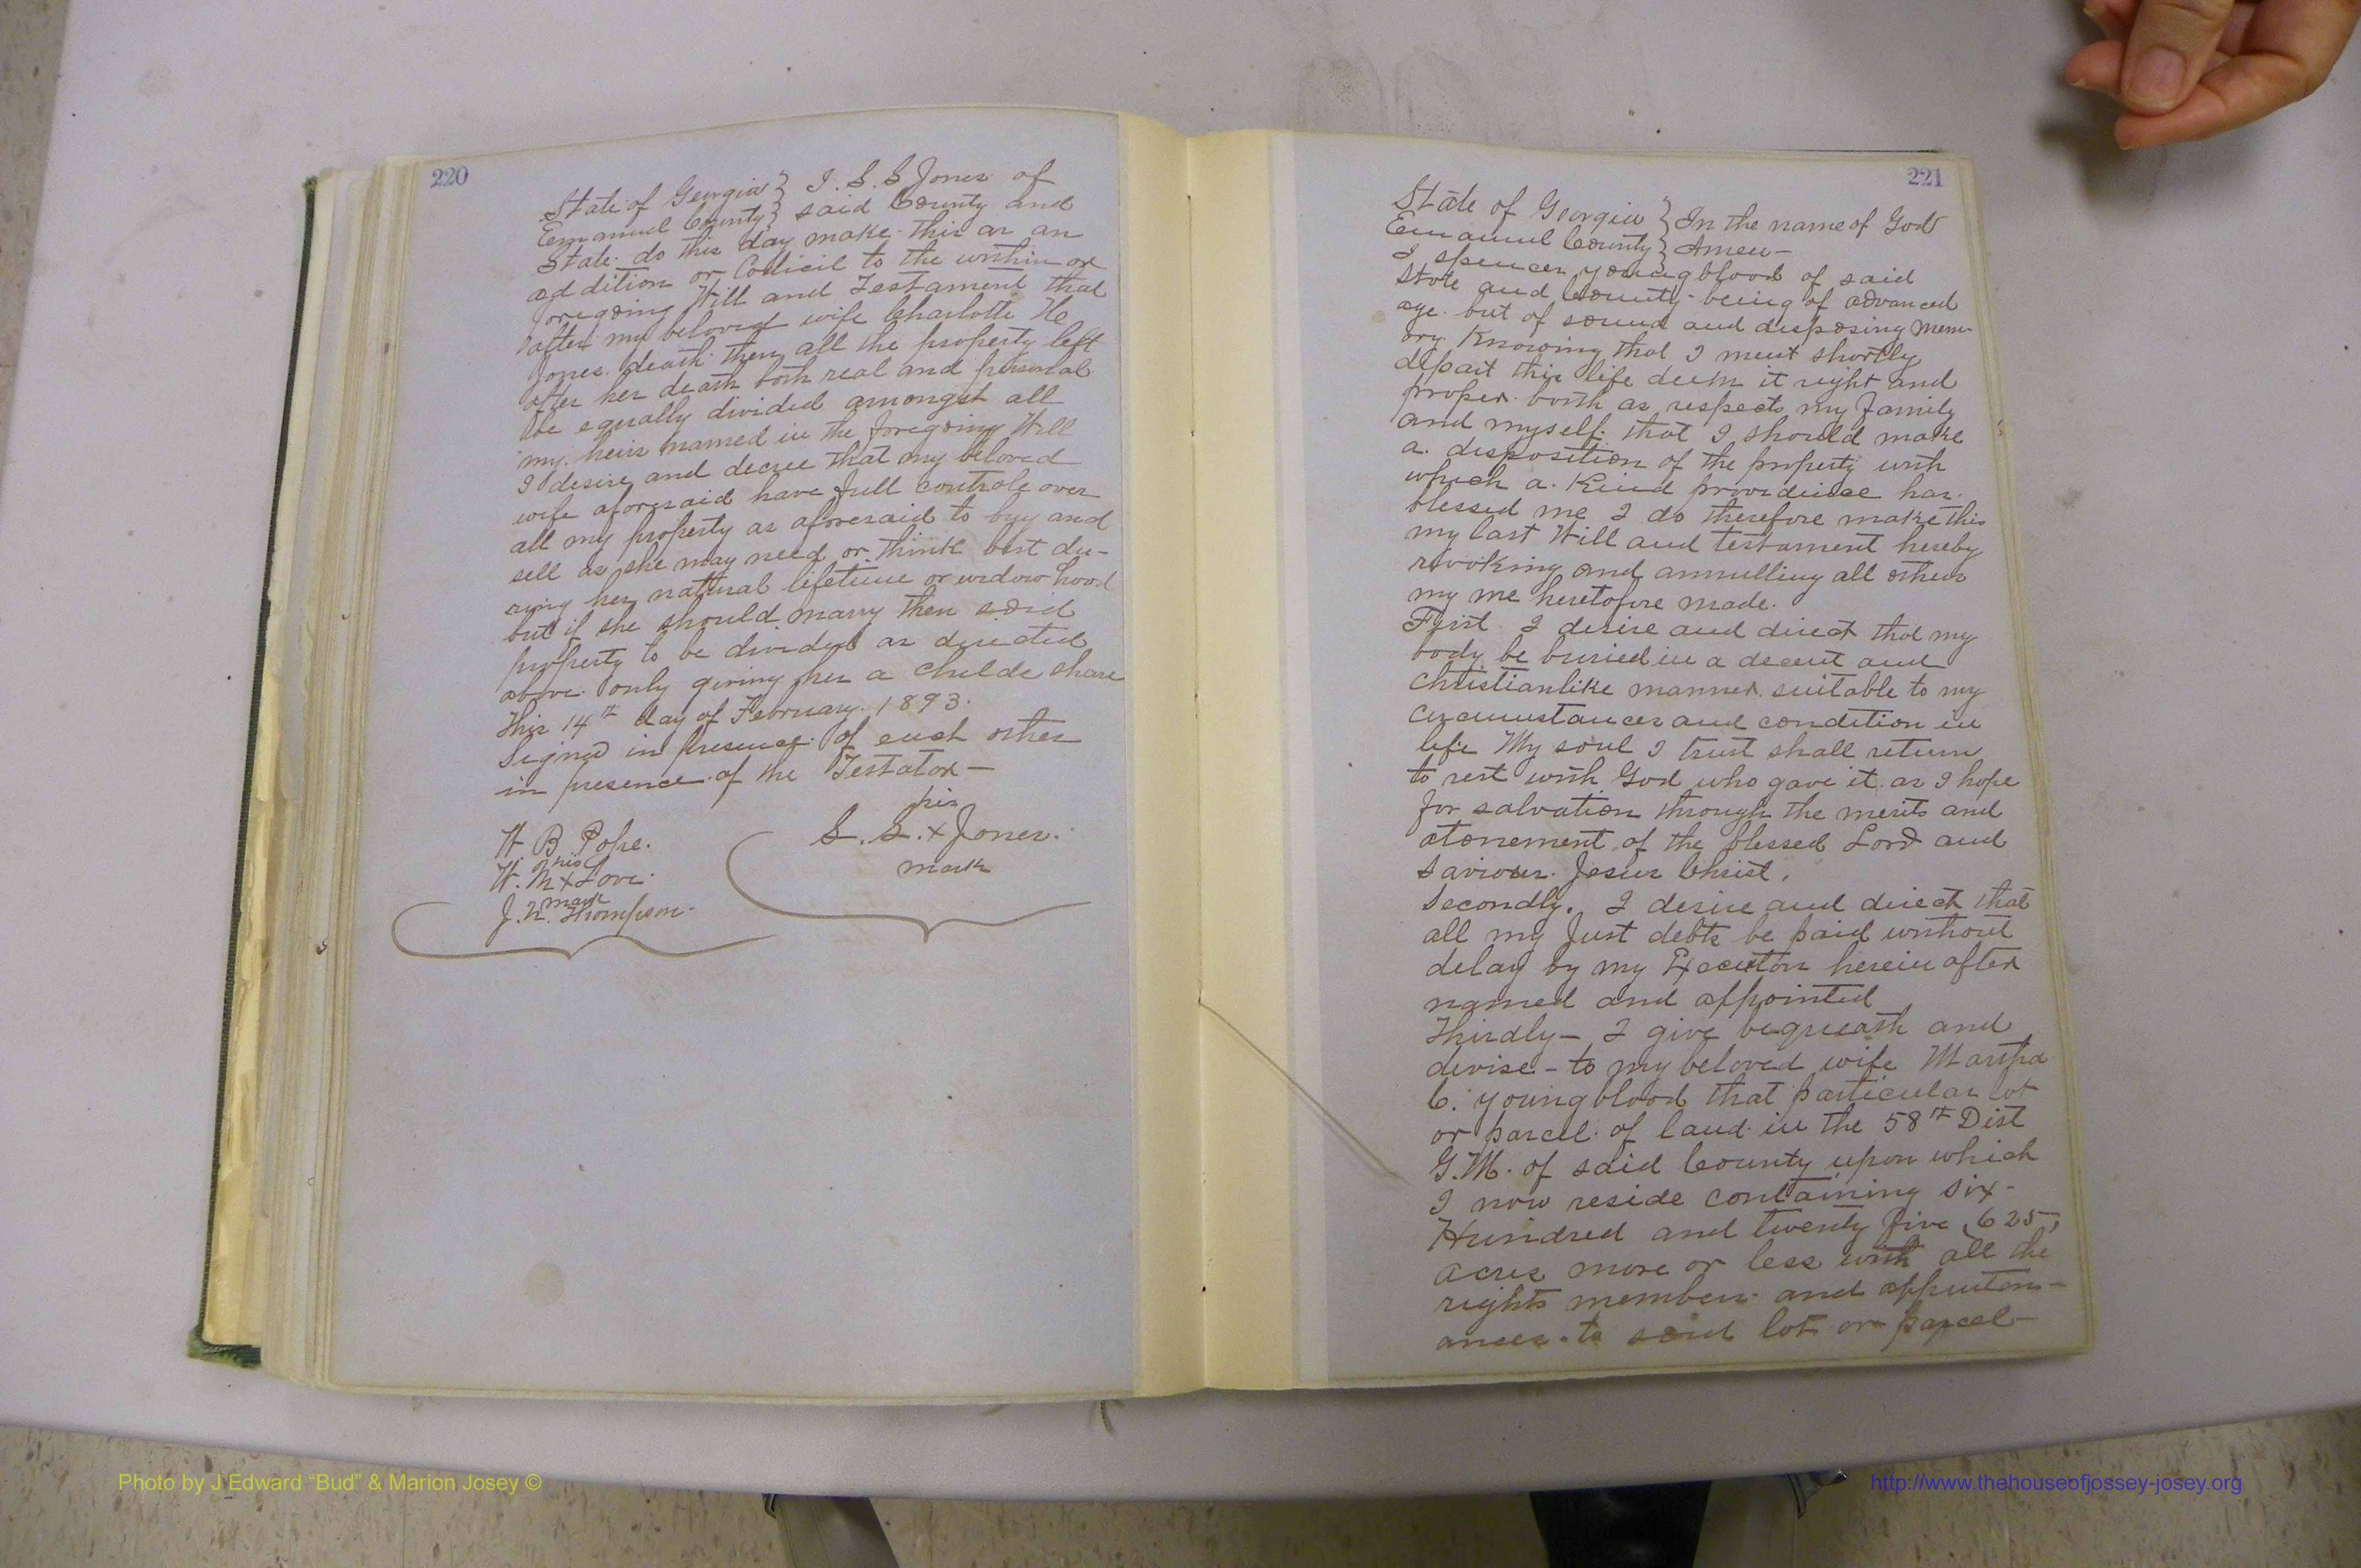 220
State of Georgia } I. S. S. Jones of
Emanuel County } said County and
State do this day make this as an
addition or Codicil to the within or
foregoing Will and Testament that
after my beloved wife Charlotte He
Jones death then all the property left
after her death both real and personal
be equally divided amongst all
my heirs named in the foregoing Will
I desire and decree that my beloved
wife aforesaid have full controle over
all my property as aforesaid to buy and
sell as she may need or think best du-
ring her natural lifetime or widowhood
but if she should marry then said
property to be divided as directed
above only giving her a childs share
This 14th day of February. 1893.
Signed in presence of each other
in presence of the Testator—
his
S. S. x Jones.
mark
W. B Pope.
his
W. M x Love.
mark
J. N. Thompson.
221
State of Georgia } In the name of God
Emanuel County } Amen—
I spencer youngblood of said
State and County being of advanced
age. but of sound and disposing mem-
ory Knowing that I must shortly
depait this life deem it right and
proper. both as respects my family
and myself. that I should make
a. disposition of the property with
which a. Kind providence has.
blessed me I do therefore make this
my last Will and testament hereby
revoking and annulling all others
my me heretofore made.
First I desire and direct that my
body be buried in a decent and
christianlike manner. suitable to my
circumstances and condition in
life My soul I trust shall return
to rest with God who gave it. as I hope
for salvation through the merits and
atonement of the blessed Lord and
Saviour. Jesus Christ.
Secondly. I desire and direct that
all my Just debts be paid without
delay by my Executors herein after
named and appointed
Thirdly— I give bequeath and
devise – to my beloved wife Martha
C. youngblood that particular lot
or parcel. of land in the 58th Dist
G.M. of said County upon which
I now reside containing six-
Hundred and twenty five (625)
acres more or less with all the
rights members and appurten-
ances. to said lot or parcel—
Photo by J Edward “Bud” & Marion Josey ©
http://www.thehouseofjossey-josey.org